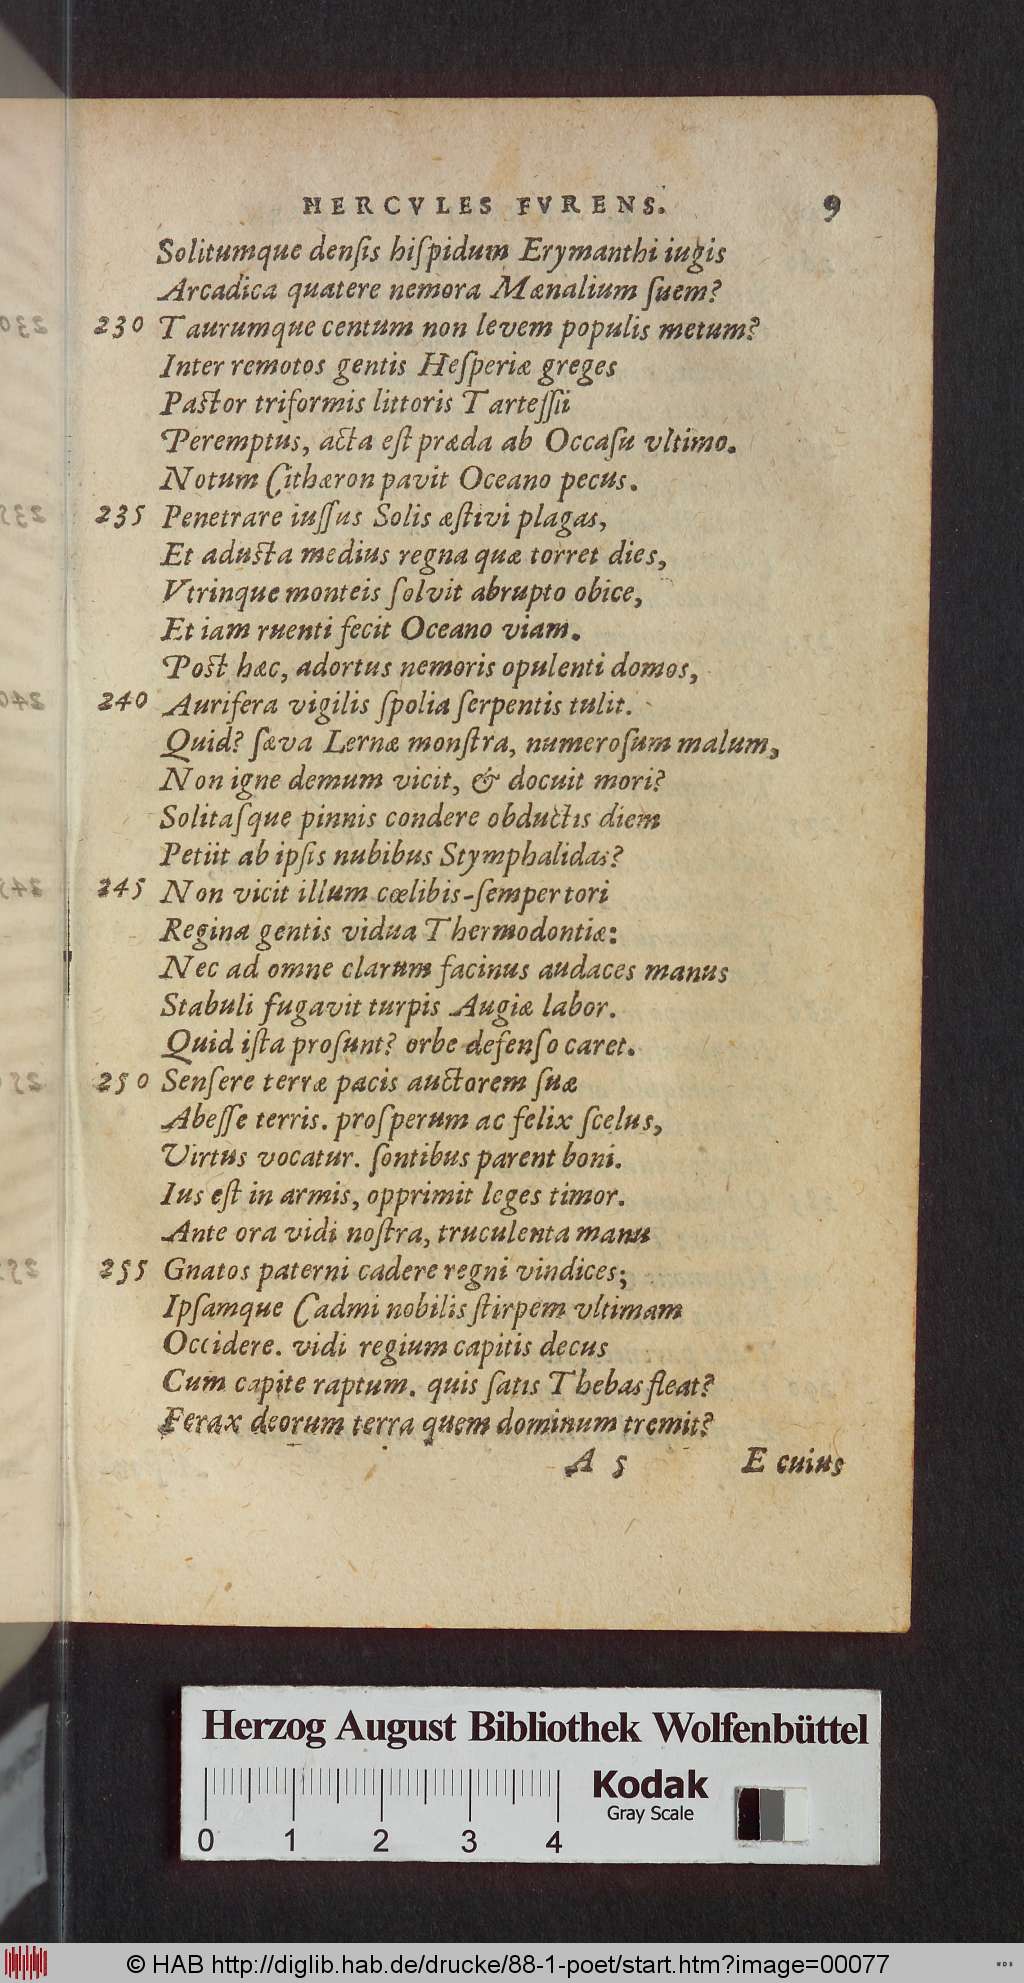 HERCVLES FVRENS. 9
Solitumque denſis hiſpidum Erymanthi iugis
Arcadica quatere nemora Mænalium ſuem?
230 Taurumque centum non levem populis metum?
Inter remotos gentis Heſperiæ greges
Paſtor triformis littoris Tarteſſii
Peremptus, acta eſt præda ab Occaſu vltimo.
Notum Cithæron pavit Oceano pecus.
235 Penetrare iuſſus Solis æſtivi plagas,
Et aduſta medius regna quæ torret dies,
Vtrinque monteis ſolvit abrupto obice,
Et iam ruenti fecit Oceano viam.
Poſt hæc, adortus nemoris opulenti domos,
240 Aurifera vigilis ſpolia ſerpentis tulit.
Quid? ſæva Lernæ monſtra, numeroſum malum,
Non igne demum vicit, & docuit mori?
Solitaſque pinnis condere obductis diem
Petiit ab ipſis nubibus Stymphalidas?
245 Non vicit illum cœlibis-ſemper tori
Regina gentis vidua Thermodontiæ:
Nec ad omne clarum facinus audaces manus
Stabuli fugavit turpis Augiæ labor.
Quid iſta proſunt? orbe defenſo caret.
250 Senſere terræ pacis auctorem ſuæ
Abeſſe terris. proſperum ac felix ſcelus,
Virtus vocatur. ſontibus parent boni.
Ius eſt in armis, opprimit leges timor.
Ante ora vidi noſtra, truculenta manu
255 Gnatos paterni cadere regni vindices;
Ipſamque Cadmi nobilis ſtirpem vltimam
Occidere. vidi regium capitis decus
Cum capite raptum. quis ſatis Thebas fleat?
Ferax deorum terra quem dominum tremit?
A 5 E cuius
Herzog August Bibliothek Wolfenbüttel
Kodak
Gray Scale
0 1 2 3 4
© HAB http://diglib.hab.de/drucke/88-1-poet/start.htm?image=00077